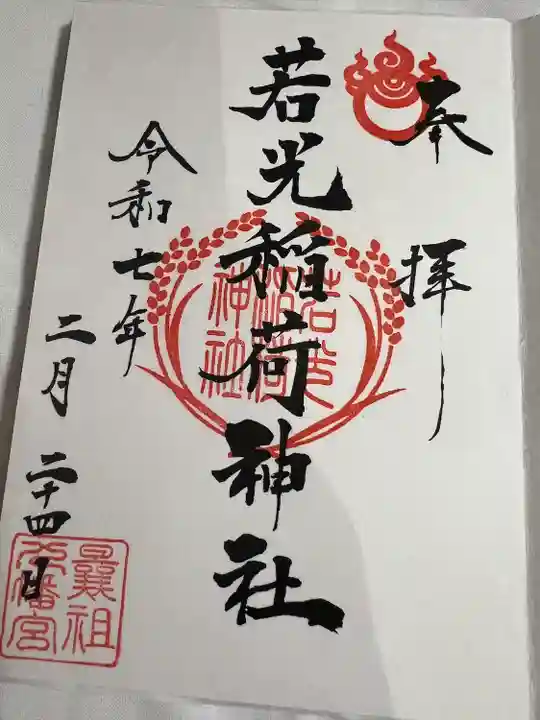 奉拝
若光稲荷神社
令和七年
二月二十四日
若光
稲荷
神社
八幡宮